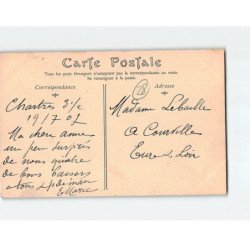 Carte Postale
Tous les pays étrangers n'acceptent pas la correspondance au verso.
Se renseigner à la poste.
Correspondance
Adresse
28
Chartres 3/2
19/7 07
Ma chère amie
un peu surpris
de nous quatre
de bons baisers
à tous
Marie
Madame Lebaille
à Courville
Eure & Loir